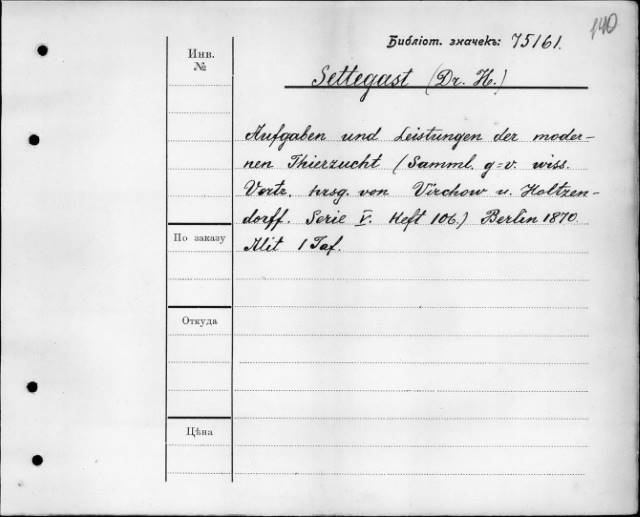 140
Библіот. значекъ: 75161.
Инв.
№
Settegast (Dr. H.)
Aufgaben und Leistungen der moder-
nen Thierzucht (Samml. g=v. wiss.
Vortr. hrsg. von Virchow u. Holtzen-
dorff. Serie V. Heft 106.) Berlin 1870.
Mit 1 Taf.
По заказу
Откуда
Цѣна